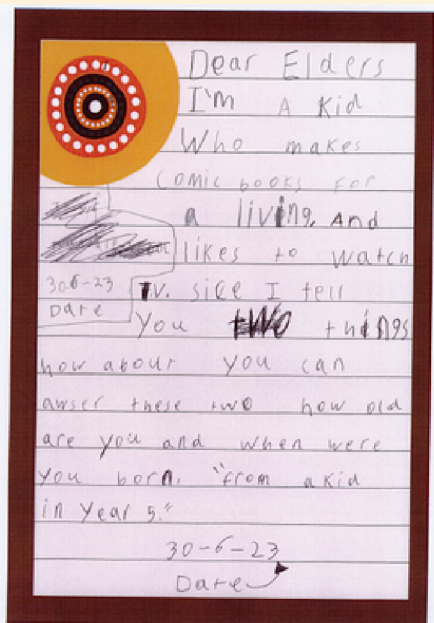 Dear Elders
I'm A Kid
Who makes
comic books for
a living. And
likes to watch
Tv. sice I tell
You two things
how about you can
awser these two how old
are you and when were
you born. "from a kid
in Year 5."
30-6-23
Date
30-6-23
Date